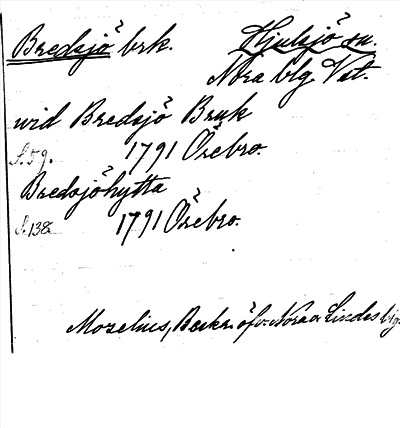 Bredsjö brk. Hjulsjö sn.
Nora blg Vst.
wid Bredsjö Bruk
S. 59. 1791 Örebro.
Bredsjöhytta
S. 138 1791 Örebro.
Moselius, Beskr. öfv. Nora o. Lindes blg.